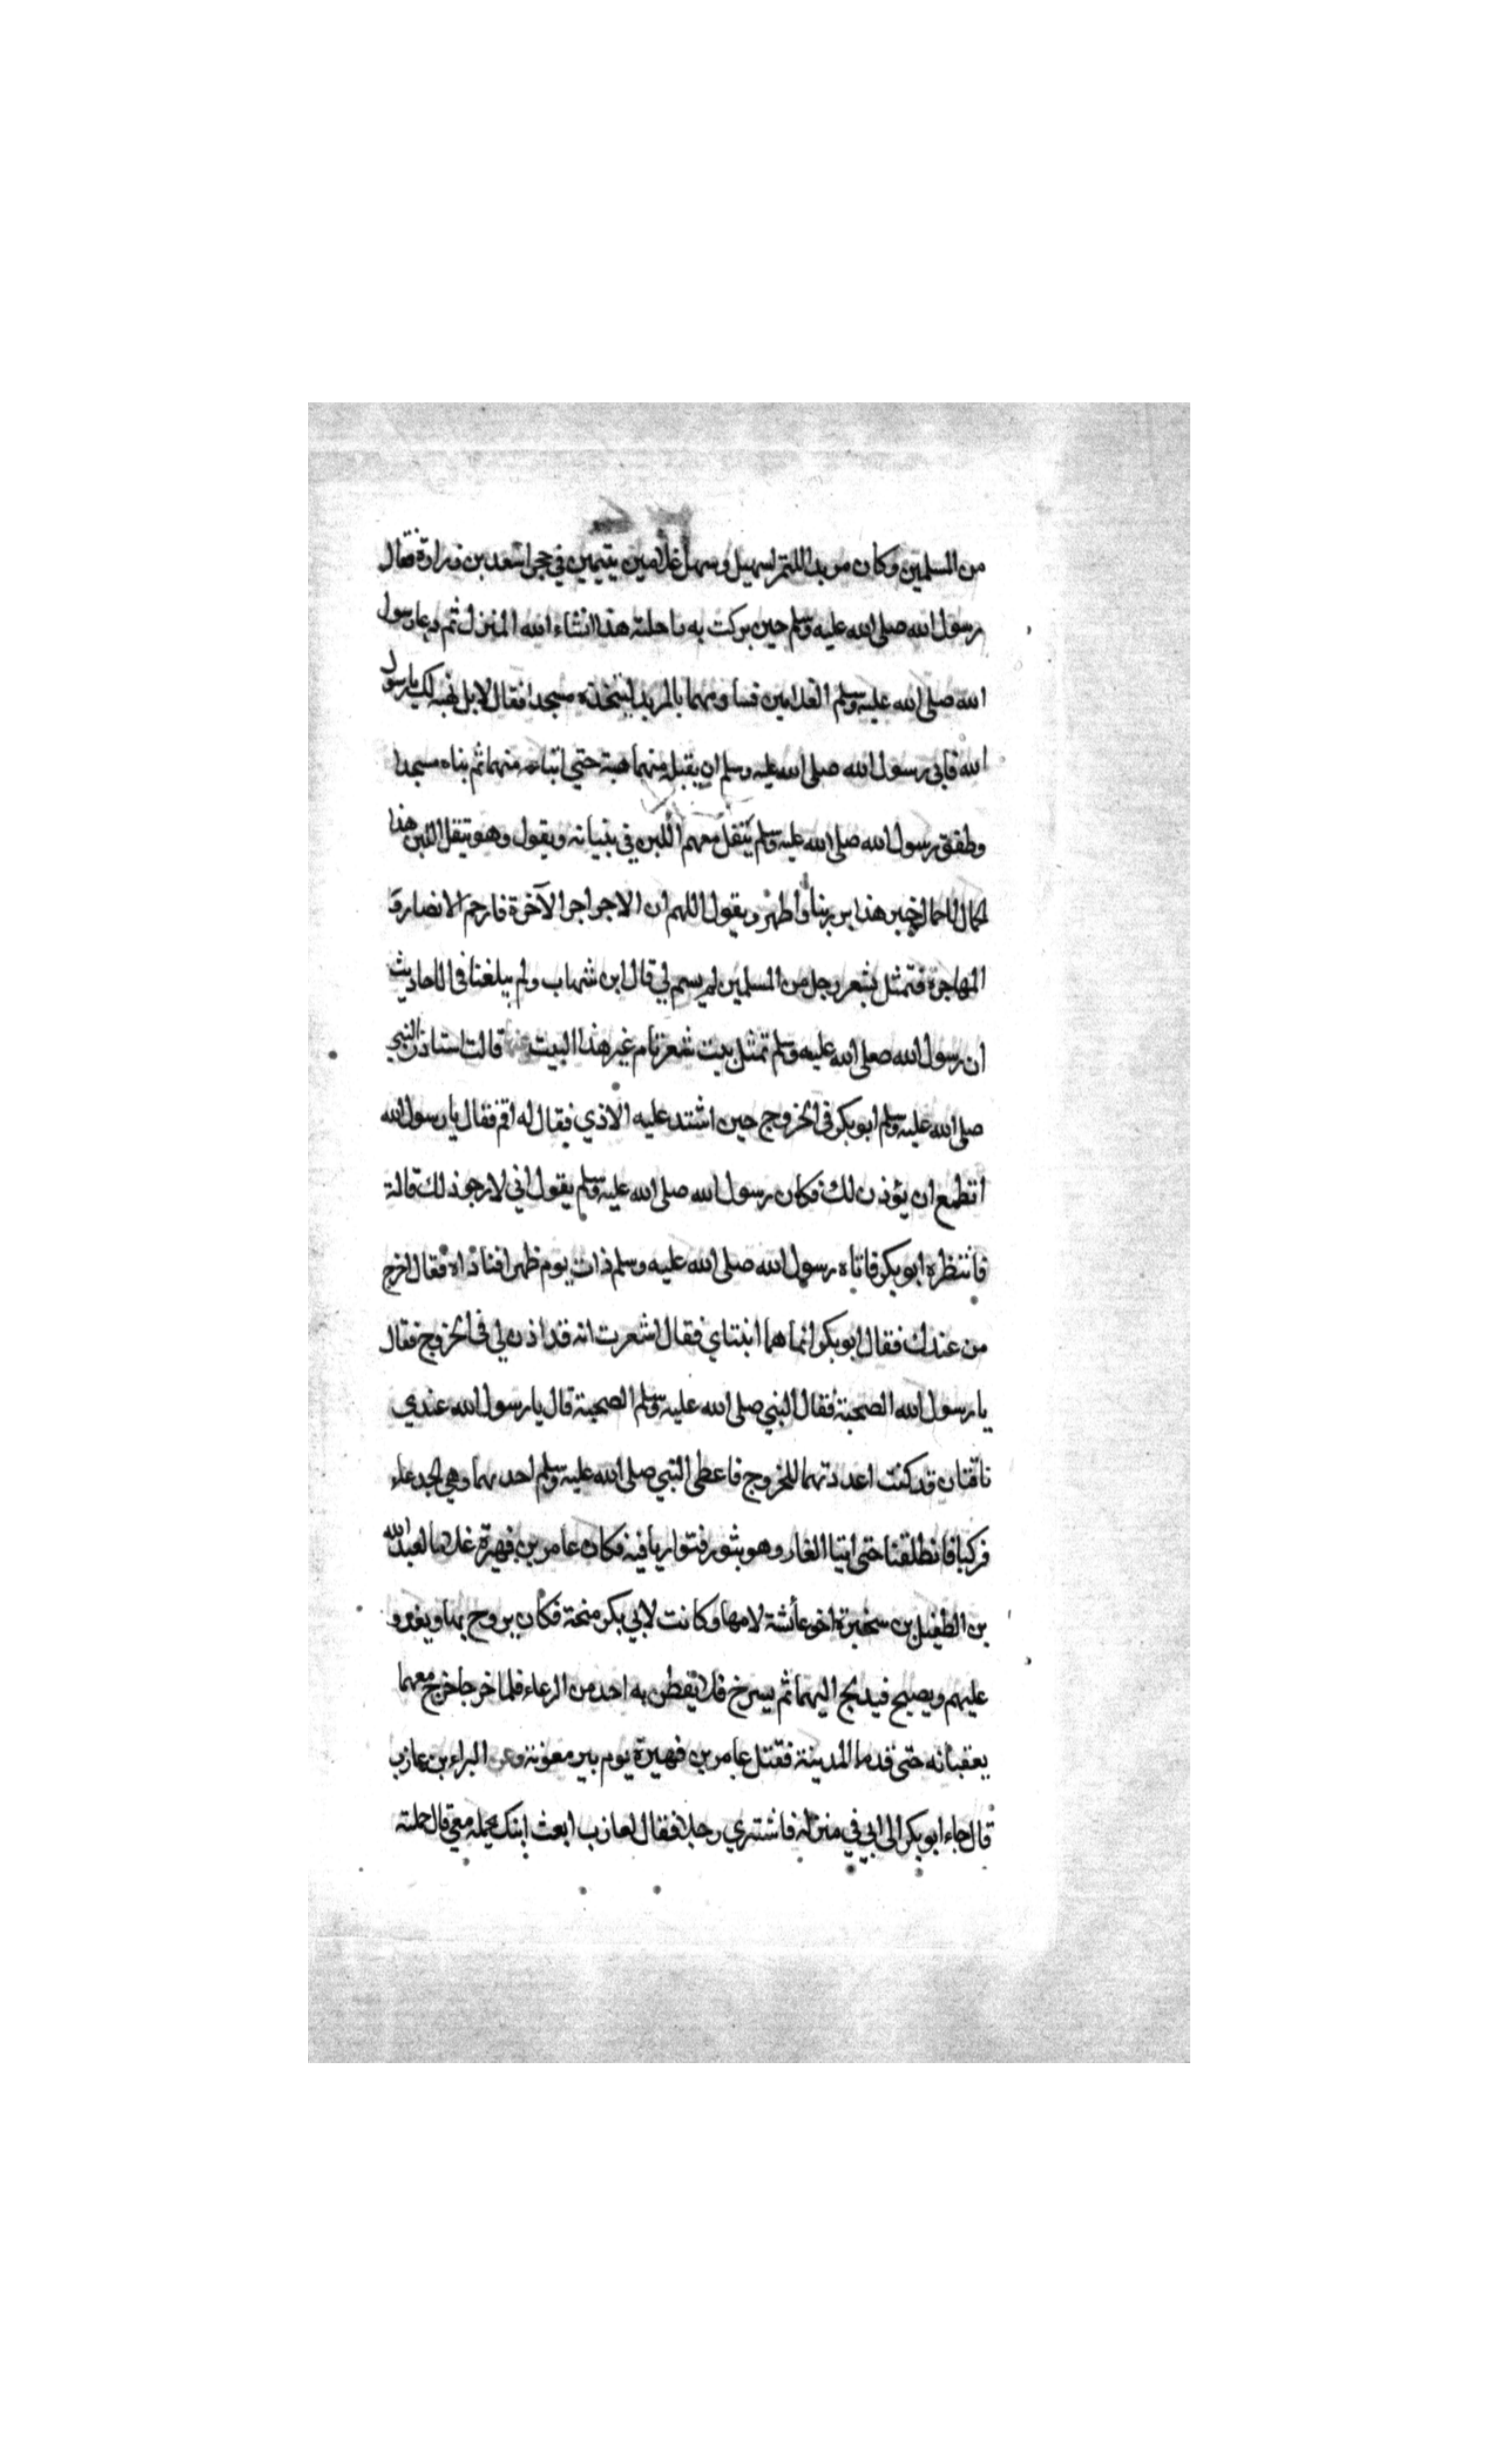 من المسلمين وكان مربدا للتمر لسهيل وسهل غلامين يتيمين في حجر اسعد بن زرارة فقال
رسول الله صلى الله عليه وسلم حين بركت به راحلته هذا انشاء الله المنزل ثم دعا رسول
الله صلى الله عليه وسلم الغلامين فساومهما بالمربد ليتخذه مسجدا فقال لا بل نهبه لك يا رسول
الله فابى رسول الله صلى الله عليه وسلم ان يقبله منهما هبة حتي ابتاعه منهما ثم بناه مسجدا
وطفق رسول الله صلى الله عليه وسلم ينقل معهم اللبن في بنيانه ويقول وهو ينقل اللبن هذا
الحمال لا حمال خيبر هذا ابر ربنا واطهر ويقول اللهم ان الاجر اجر الآخرة فارحم الانصار و
المهاجرة فتمثل بشعر رجل من المسلمين لم يسم لي قال ابن شهاب ولم يبلغنا في الاحاديث
ان رسول الله صلى الله عليه وسلم تمثل ببيت شعر تام غير هذا البيت قالت استاذن النبي
صلى الله عليه وسلم ابو بكر في الخروج حين اشتد عليه الاذي فقال له اقم فقال يا رسول الله
اتطمع ان يؤذن لك فكان رسول الله صلى الله عليه وسلم يقول اني لارجو ذلك قالة
فانتظره ابو بكر فاتاه رسول الله صلى الله عليه وسلم ذات يوم ظهرا فناداه فقال اخرج
من عندك فقال ابو بكر انما هما ابنتاي فقال اشعرت انه قد اذن لي في الخروج فقال
يا رسول الله الصحبة فقال النبي صلى الله عليه وسلم الصحبة قال يا رسول الله عندي
ناقتان قد كنت اعددتهما للخروج فاعطى النبي صلى الله عليه وسلم احدىهما وهي الجدعاء
فركبا فانطلقنا حتى اتيا الغار وهو بثور فتواريا فيه فكان عامر بن فهيرة غلاما لعبد الله
بن الطفيل بن سخبرة اخو عائشة لامها وكانت لابي بكر منحة فكان يروح بها ويغدو
عليهم ويصبح فيدلج اليهما ثم يسرح فلا يفطن به احد من الرعاء فلما خرجا خرج معهما
يعقبانه حتى قدما المدينة فقتل عامر بن فهيرة يوم بير معونة وعن البراء بن عازب
قال جاء ابو بكر الى ابي في منزله فاشتري رحلا فقال لعازب ابعث ابنك يحمله معي قال حملته